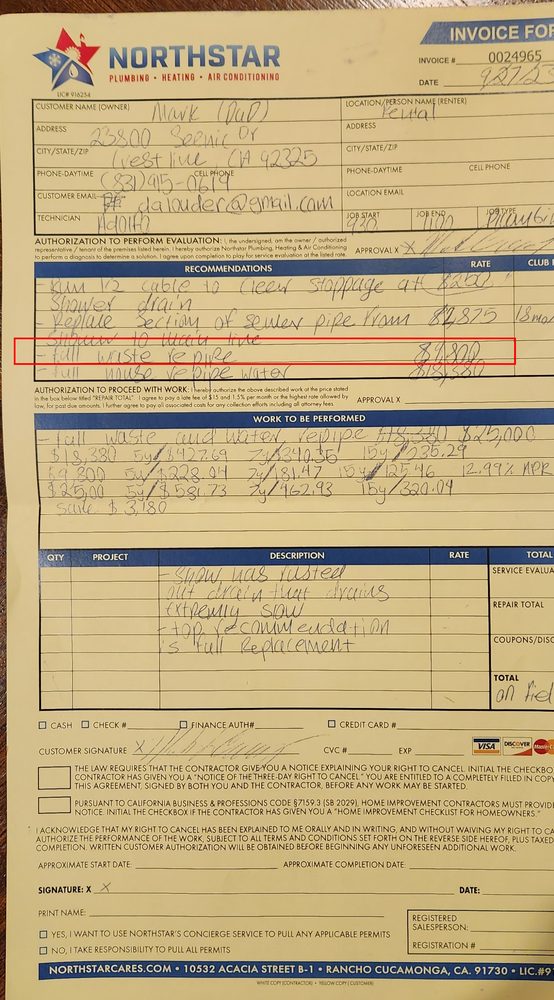 INVOICE FOR
NORTHSTAR
PLUMBING • HEATING • AIR CONDITIONING
LIC# 916254
INVOICE # 0024965
DATE 9/27/23
CUSTOMER NAME (OWNER) Mark (DaD)
LOCATION/PERSON NAME (RENTER)
ADDRESS 23800 Scenic Dr
ADDRESS
CITY/STATE/ZIP Crestline CA 92325
CITY/STATE/ZIP
PHONE-DAYTIME CELL PHONE
(831) 915-0619
PHONE-DAYTIME CELL PHONE
CUSTOMER EMAIL dalouder@gmail.com
LOCATION EMAIL
TECHNICIAN Adolfo
JOB START 930 JOB END 1100 JOB TYPE
AUTHORIZATION TO PERFORM EVALUATION: I, the undersigned, am the owner / authorized
representative / tenant of the premises listed herein. I hereby authorize Northstar Plumbing, Heating & Air Conditioning
to perform a diagnosis to determine a solution. I agree upon completion to pay for service evaluation at the listed rate.
APPROVAL X
RECOMMENDATIONS RATE CLUB
- Run 1/2 cable to clear stoppage at $252
shower drain
- Replace section of sewer pipe from $2,875 18mo
shower to main line
- full waste repipe $9,800
- full house repipe water $18,380
AUTHORIZATION TO PROCEED WITH WORK: I hereby authorize the above described work at the price stated
in the box below titled "REPAIR TOTAL". I agree to pay a late fee of $15 and 1.5% per month or the highest rate allowed by
law, for past due amounts. I further agree to pay all associated costs for any collection efforts including all attorney fees.
APPROVAL X
WORK TO BE PERFORMED
- full waste and water repipe $25,000
$18,380 5y/$427.69 7y/$340.35 15y/235.29
$9,800 5y/$228.04 7y/181.47 15y/125.46 12.99% APR
$25,00 5y/$581.73 7y/462.93 15y/320.04
save $3,180
QTY PROJECT DESCRIPTION RATE TOTAL
- show has rusted
out drain that drains
extremly slow
- top recommendation
is full replacement
SERVICE EVALUA
REPAIR TOTAL
COUPONS/DISC
TOTAL
CASH CHECK # FINANCE AUTH# CREDIT CARD #
CUSTOMER SIGNATURE X CVC # EXP
VISA DISCOVER
THE LAW REQUIRES THAT THE CONTRACTOR GIVE YOU A NOTICE EXPLAINING YOUR RIGHT TO CANCEL. INITIAL THE CHECKBO
CONTRACTOR HAS GIVEN YOU A "NOTICE OF THE THREE-DAY RIGHT TO CANCEL." YOU ARE ENTITLED TO A COMPLETELY FILLED IN COPY
THIS AGREEMENT, SIGNED BY BOTH YOU AND THE CONTRACTOR, BEFORE ANY WORK MAY BE STARTED.
PURSUANT TO CALIFORNIA BUSINESS & PROFESSIONS CODE §7159.3 (SB 2029), HOME IMPROVEMENT CONTRACTORS MUST PROVIDE
NOTICE. INITIAL THE CHECKBOX IF THE CONTRACTOR HAS GIVEN YOU A "HOME IMPROVEMENT CHECKLIST FOR HOMEOWNERS."
I ACKNOWLEDGE THAT MY RIGHT TO CANCEL HAS BEEN EXPLAINED TO ME ORALLY AND IN WRITING, AND WITHOUT WAIVING MY RIGHT TO CA
AUTHORIZE THE PERFORMANCE OF WORK, SUBJECT TO ALL TERMS AND CONDITIONS SET FORTH ON THE REVERSE SIDE HEREOF, PLUS TAXED
COMPLETION. WRITTEN CUSTOMER AUTHORIZATION WILL BE OBTAINED BEFORE BEGINNING ANY UNFORESEEN ADDITIONAL WORK.
APPROXIMATE START DATE: APPROXIMATE COMPLETION DATE:
SIGNATURE: X X DATE:
PRINT NAME:
REGISTERED
SALESPERSON:
REGISTRATION #
YES, I WANT TO USE NORTHSTAR'S CONCIERGE SERVICE TO PULL ANY APPLICABLE PERMITS
NO, I TAKE RESPONSIBILITY TO PULL ALL PERMITS
NORTHSTARCARES.COM • 10532 ACACIA STREET B-1 • RANCHO CUCAMONGA, CA. 91730 • LIC.#9
WHITE COPY (CONTRACTOR) • YELLOW COPY (CUSTOMER)